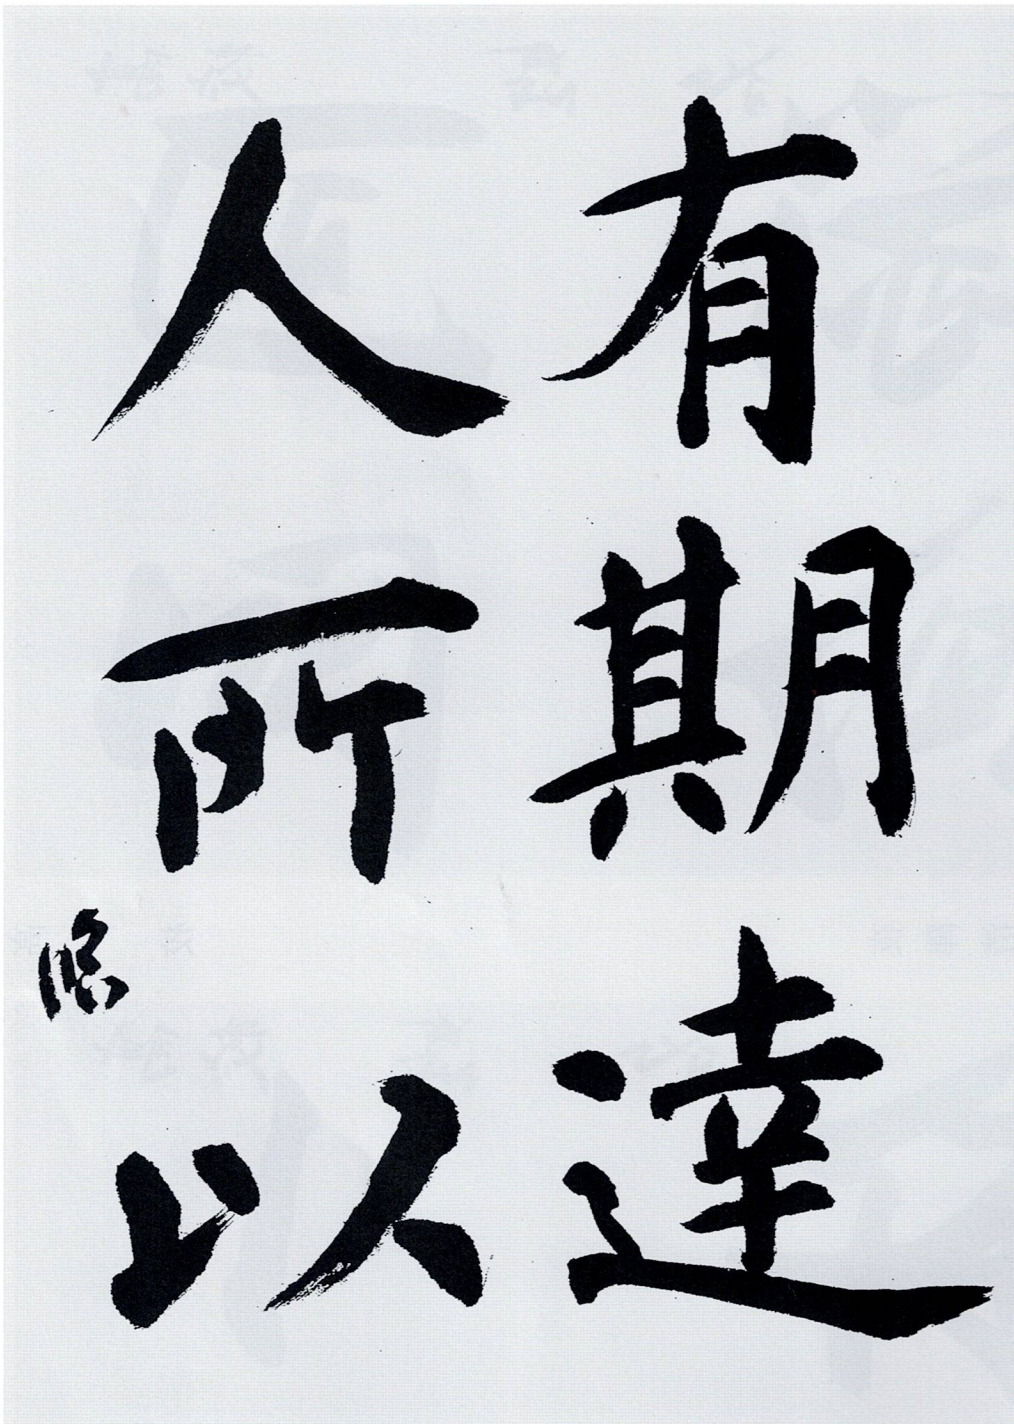 有期達
人所以